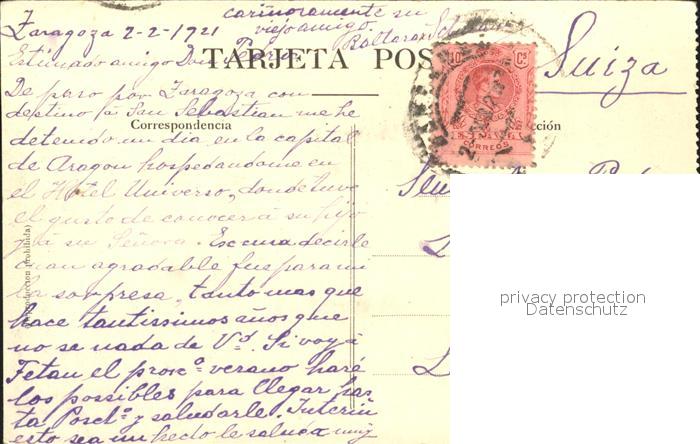 cariñosamente su
viejo amigo
Zaragoza 2-2-1921
Baltasar
TARJETA POS
Estimado amigo Don Pedro
10 Cs
Suiza
De paso por Zaragoza con
destino á San Sebastian me he
Correspondencia
cción
ESPAÑA
CORREOS
detenido un dia en la capital
de Aragon hospedandome en
el Hotel Universo, donde tuve
el gusto de conocer á su hijo
y á su Señora. Escuso decirle
cuan agradable fue para mi
la sorpresa, tanto mas que
hace tantissimos años que
no se nada de Vd. Si voy á
Fetan el proxº verano haré
los posibles para llegar has
ta Poschº y saludarle. Interin
esto sea un hecho le saluda muy
(Reproducción prohibida)
privacy protection
Datenschutz